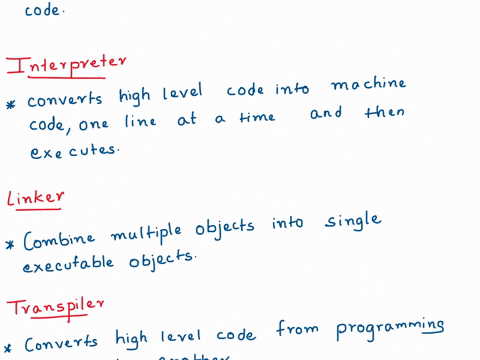 code.
Interpreter
* converts high level code into machine
code, one line at a time and then
executes.
Linker
* Combine multiple objects into single
executable objects.
Transpiler
* Converts high level code from programming
another